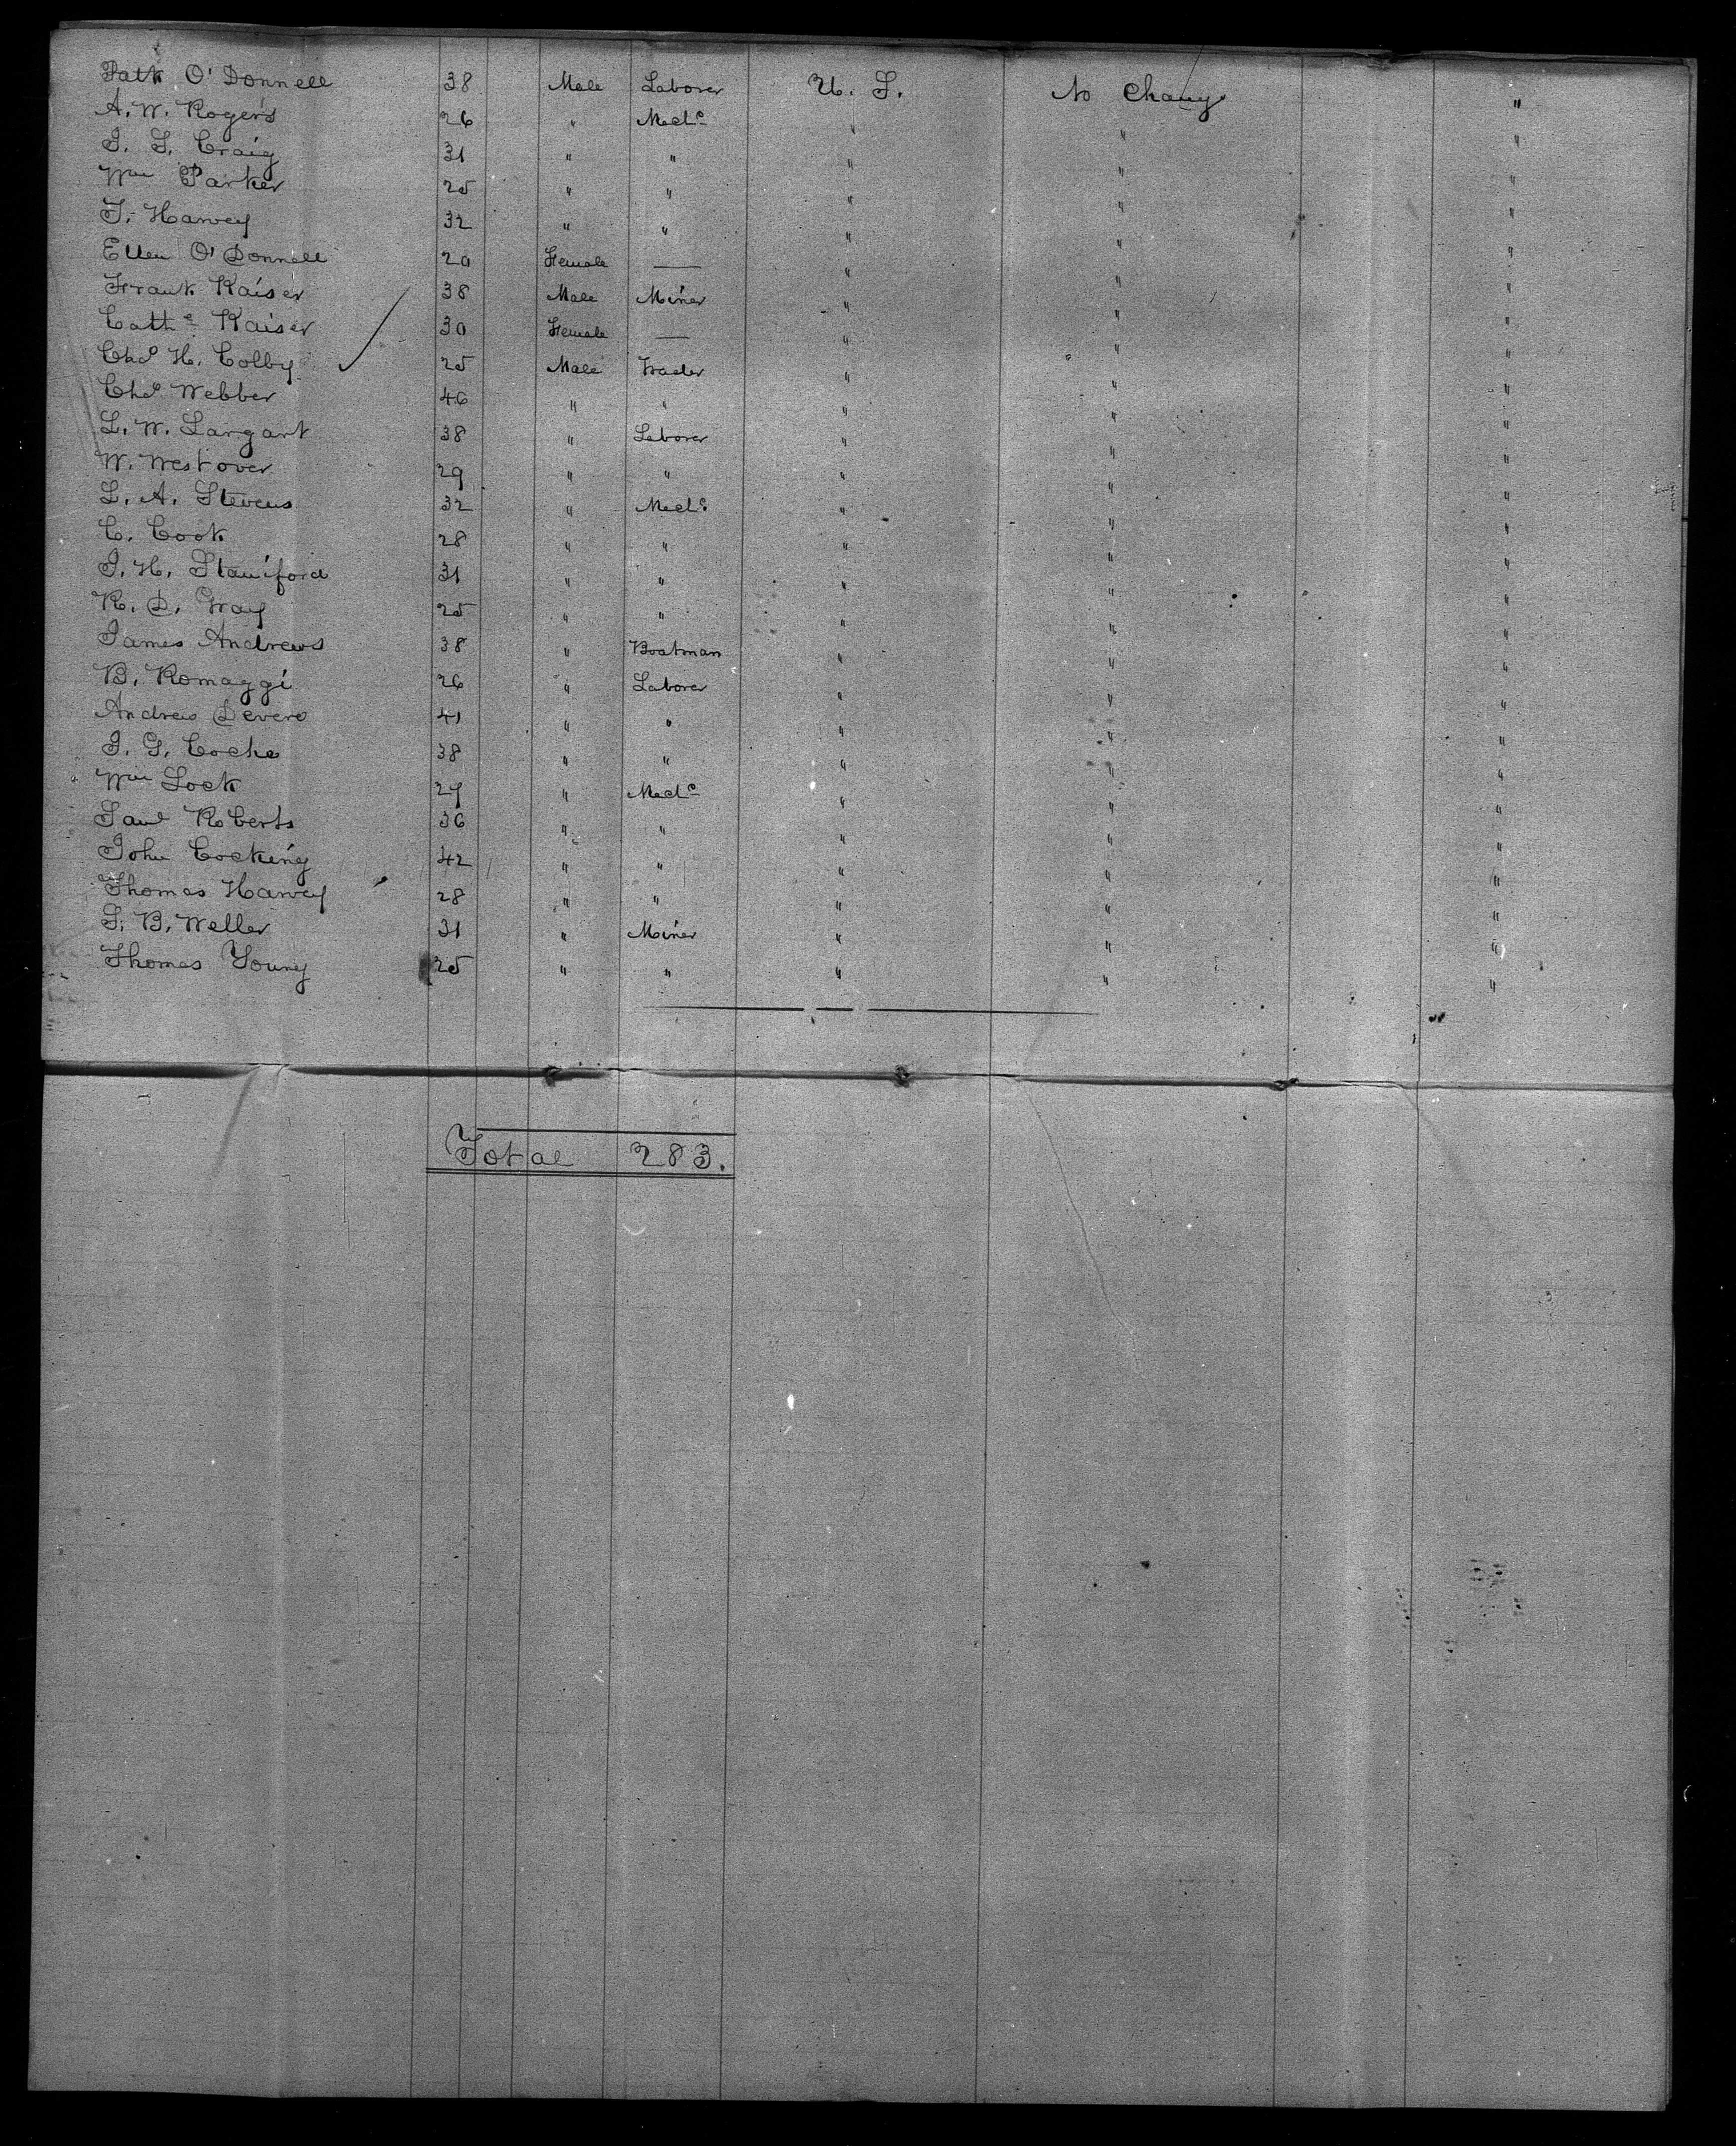 Patk O'Donnell 38 Male Laborer U. S. No Change "
A. W. Rogers 26 " Mecḥc " " "
J. S. Craig 31 " " " " "
Wm Parker 25 " " " " "
T. Harvey 32 " " " " "
Ellen O'Donnell 20 Female — " " "
Frank Kaiser 38 Male Miner " " "
Cathe Kaiser 30 Female — " " "
Chas H. Colby 25 Male Trader " " "
Chas Webber 46 " " " " "
L. W. Largart 38 " Laborer " " "
W. Westover 29 " " " " "
L. A. Stevens 32 " Mechc " " "
C. Cook 28 " " " " "
J. H. Staniford 31 " " " " "
R. D. Gray 25 " " " " "
James Andrews 38 " Boatman " " "
B. Romaggi 26 " Laborer " " "
Andrew Devero 41 " " " " "
J. G. Cocke 38 " " " " "
Wm Lock 29 " Mechc " " "
Saml Roberts 36 " " " " "
John Cocking 42 " " " " "
Thomas Harvey 28 " " " " "
S. B. Weller 31 " Miner " " "
Thomas Young 25 " " " " "
Total 283.